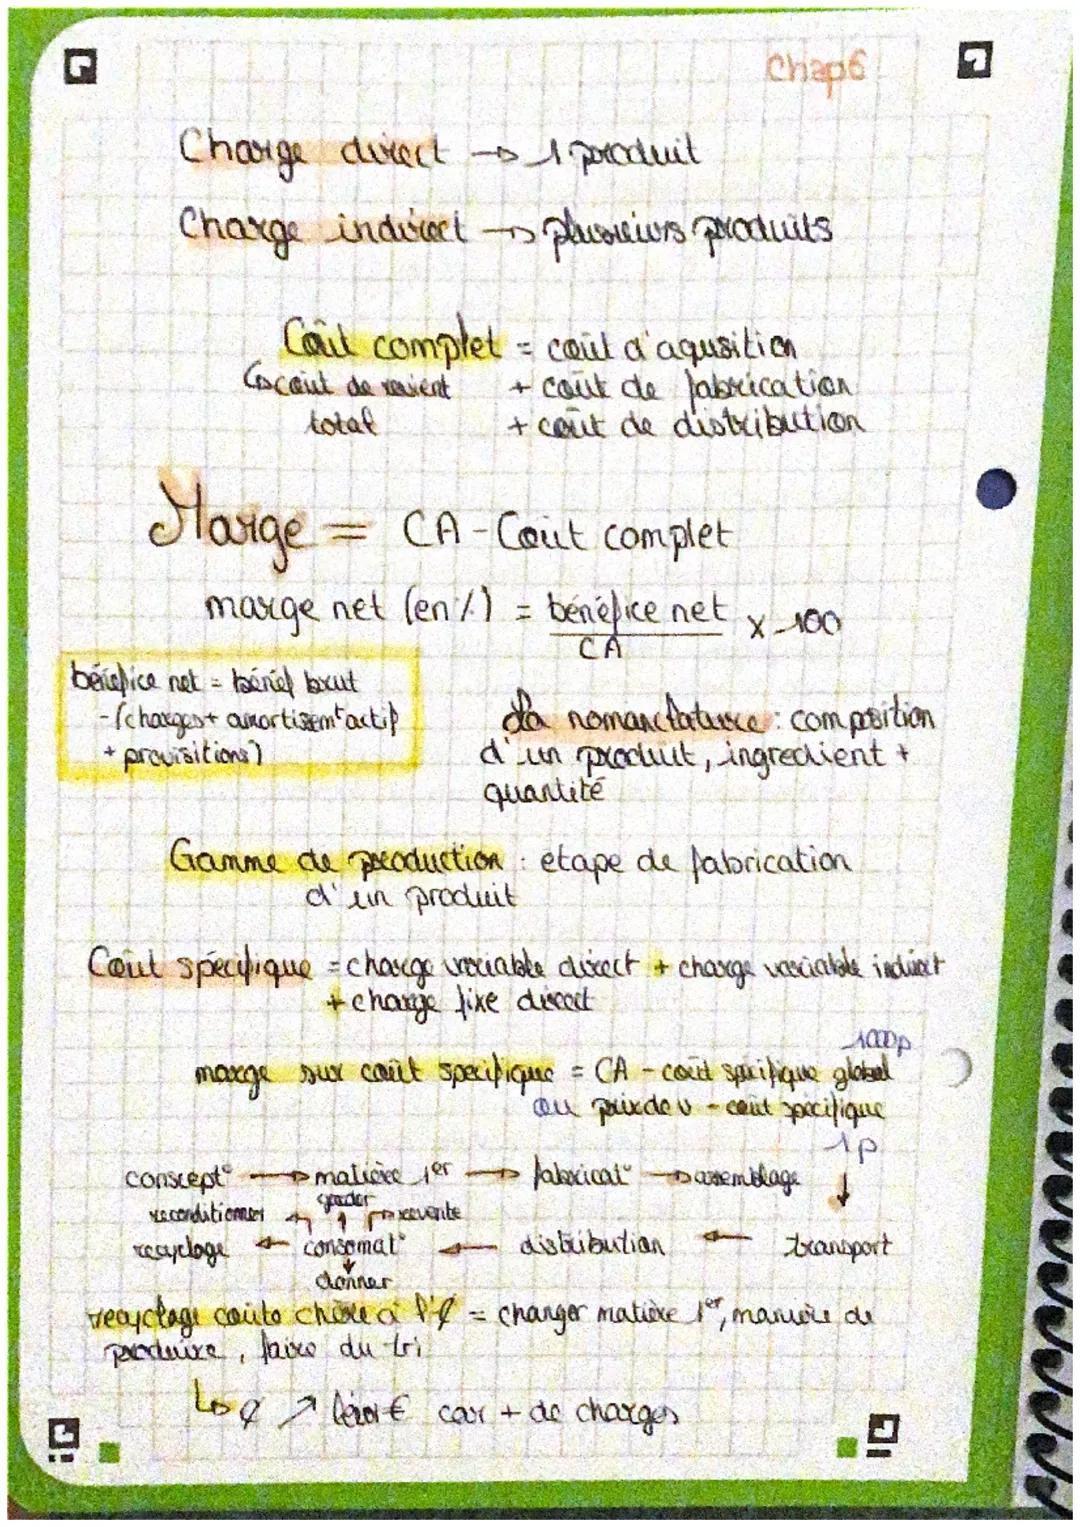 Chap6
Charge direct → 1 produit
Charge indirect → plusieurs produits
Coût complet = coût d'aqusition
↳ coût de revient + coût de fabrication
total + coût de distribution
Marge = CA - Coût complet
marge net (en %) = bénéfice net x 100
CA
bénéfice net = bénéf brut
- (charges + amortissemt actif
+ provisitions)
La nomanclature : composition
d'un produit, ingredient +
quantité
Gamme de production : étape de fabrication
d'un produit
Coût spécifique = charge variable direct + charge variable indirect
+ charge fixe direct
1000p
marge sur coût specifique = CA - coût spécifique global
ou prix de v - coût spécifique
1p
conscept° → matière 1er → fabricat° → assemblage ↓
reconditionner garder revente
recyclage ← consomat° ← distribution ← transport
donner
recyclage coûte chère à l'⊄ = changer matière 1er, manière de
produire, faire du tri
↳ ⊄ ↗ € car + de charges